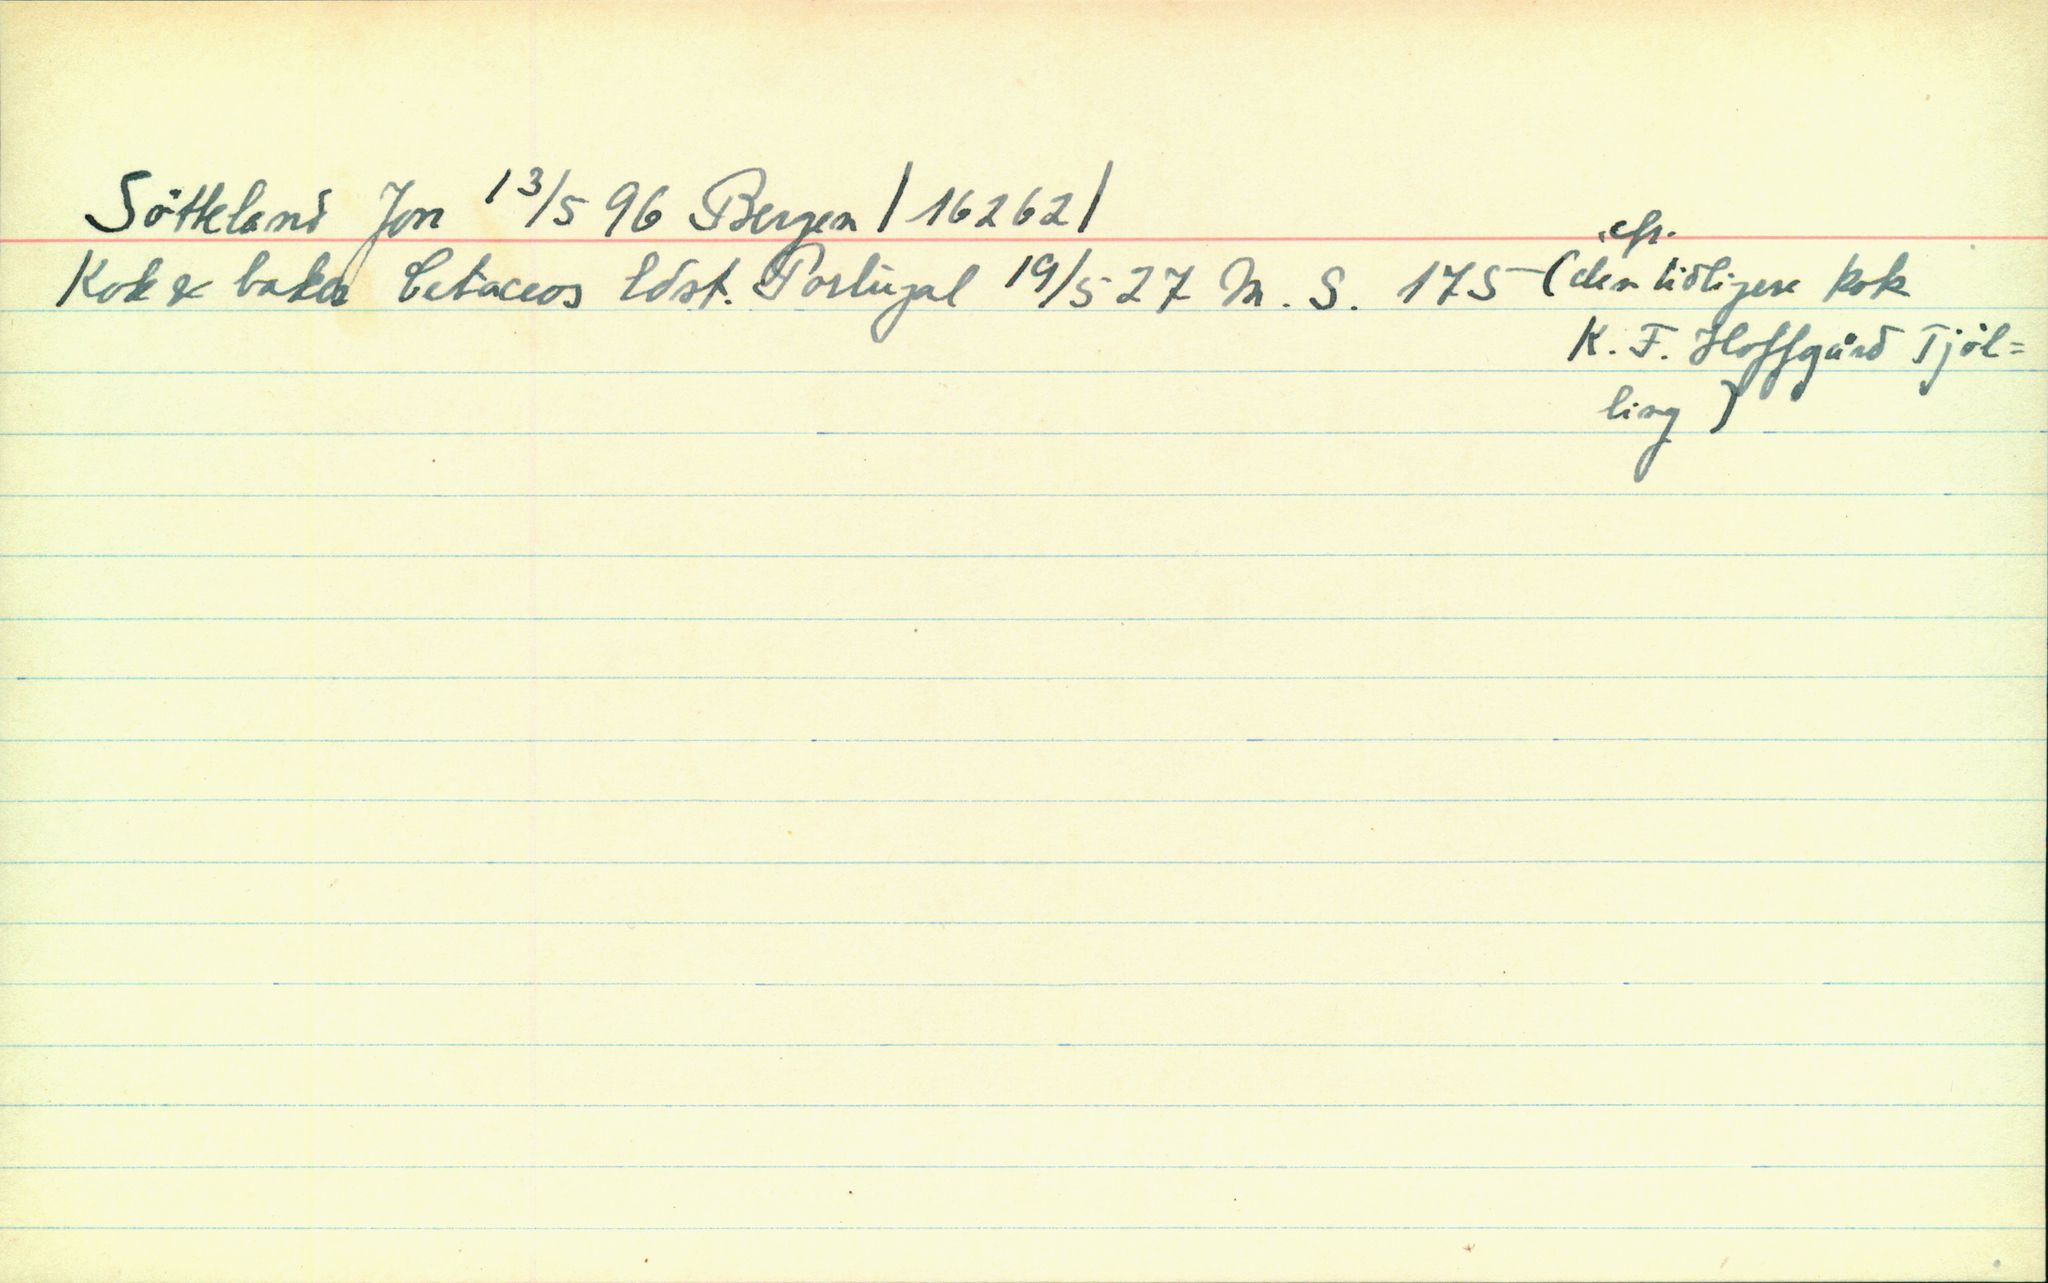 Sötteland Jon 13/5 96 Bergen / 16262 /
Kok & baker Cetaceos Löst. Portugal 19/5 27 M. S. 175 - (den tidligere kok
efr.
K. F. Hoffgård Tjöl=
ling)